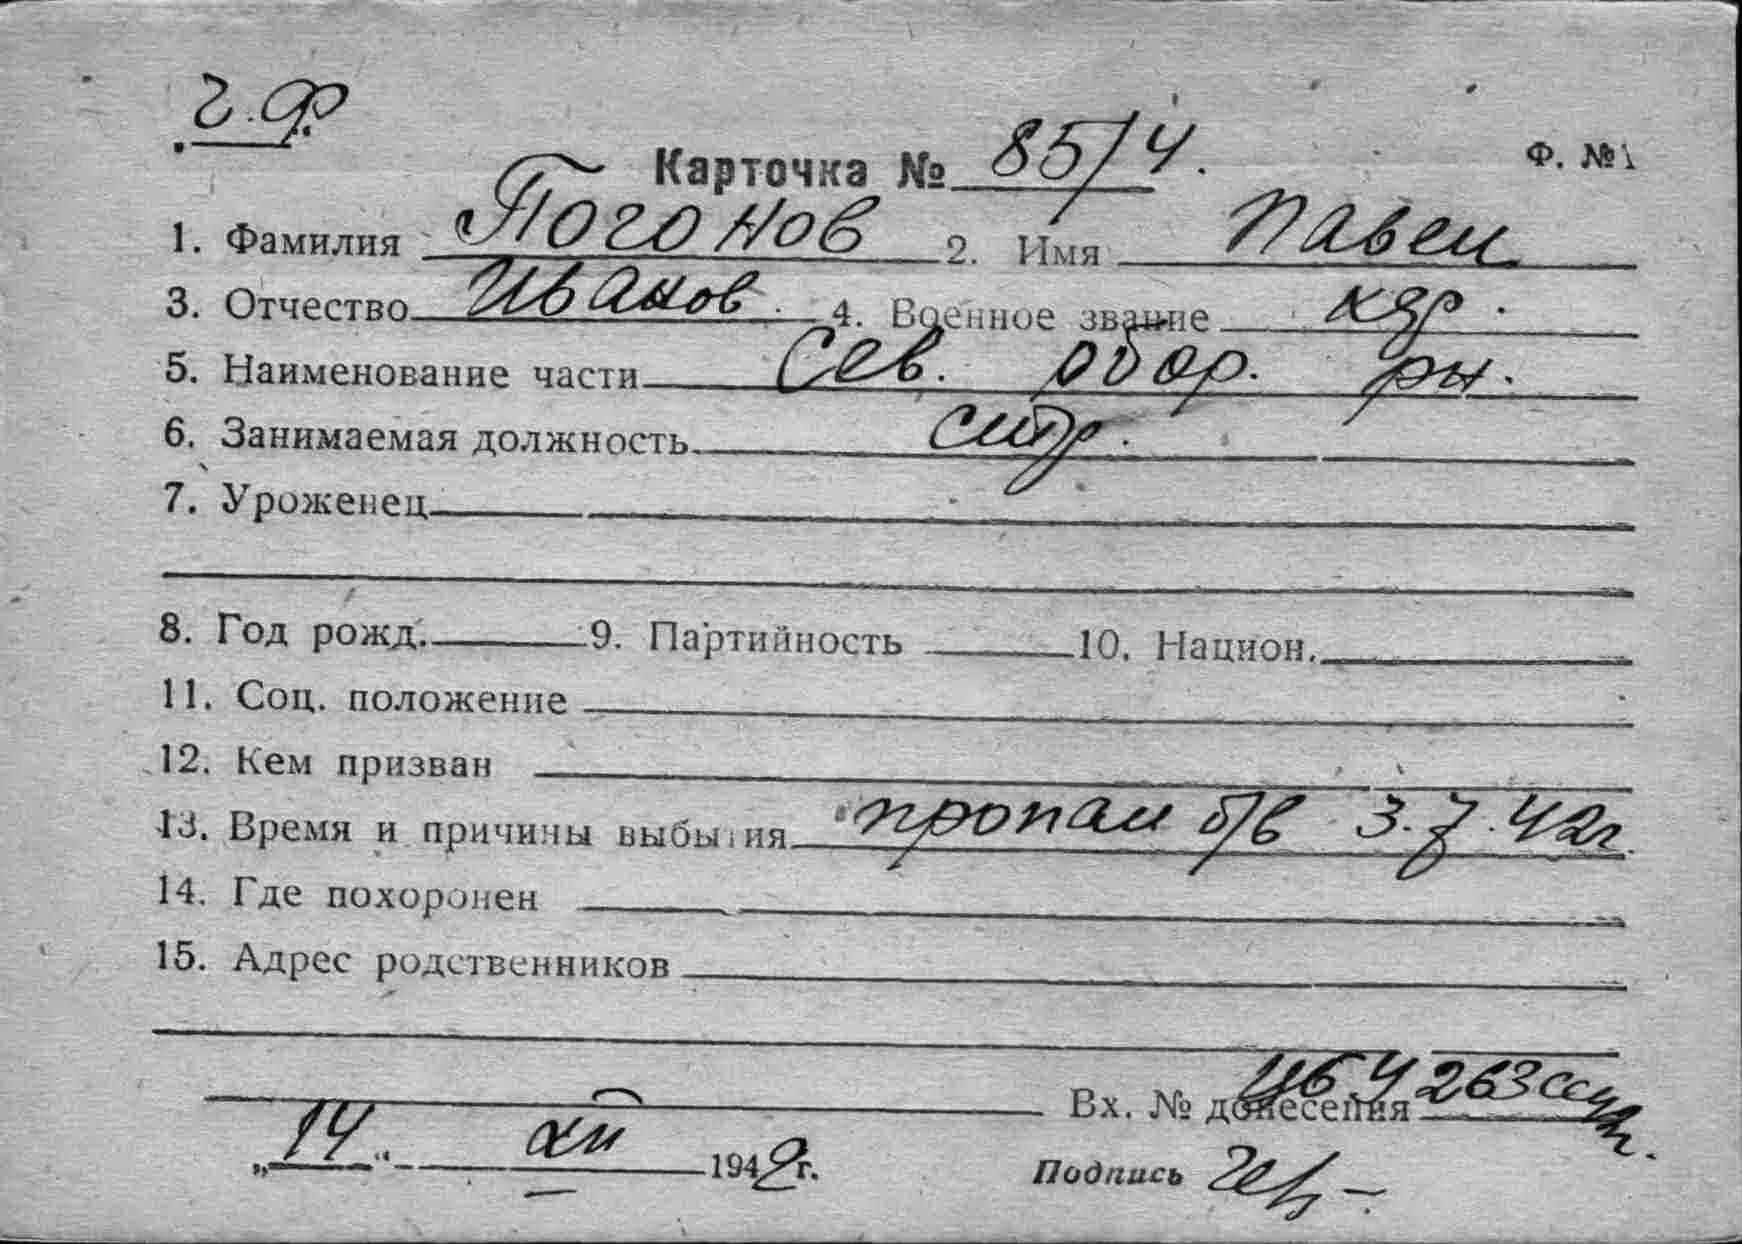 Ч.Ф.
Карточка № 85/4. Ф. №1
1. Фамилия Погонов 2. Имя Павел
3. Отчество Иванов. 4. Военное звание кдр.
5. Наименование части Сев. обор. рн.
6. Занимаемая должность стр.
7. Уроженец
8. Год рожд. 9. Партийность 10. Национ.
11. Соц. положение
12. Кем призван
13. Время и причины выбытия пропал б/в 3.7.42г.
14. Где похоронен
15. Адрес родственников
Вх. № донесения 263
„14“ XII 1942г. Подпись